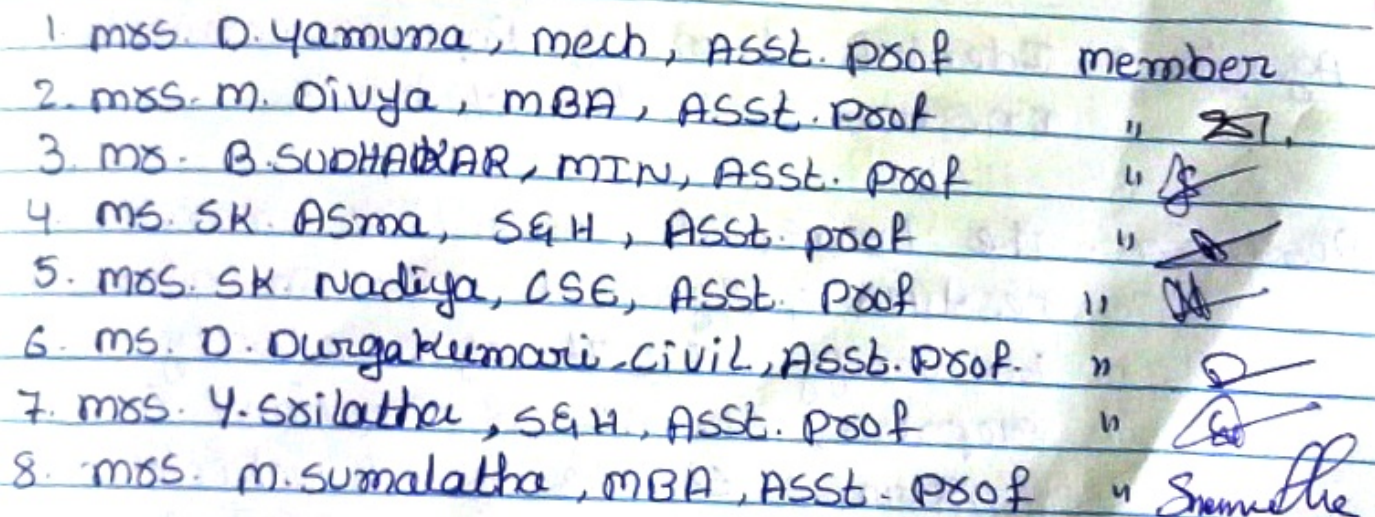 1. mrs. D. Yamuna, mech, Asst. prof member
2. mrs. m. Divya, MBA, Asst. prof "
3. mr. B. SUDHAKAR, MIN, Asst. prof "
4. ms. SK. ASma, S&H, Asst. prof "
5. mrs. SK. Nadiya, CSE, Asst. prof "
6. ms. D. Durgakumari, civil, Asst. prof. "
7. mrs. Y. Srilatha, S&H, Asst. prof "
8. mrs. m. sumalatha, MBA, Asst. prof "